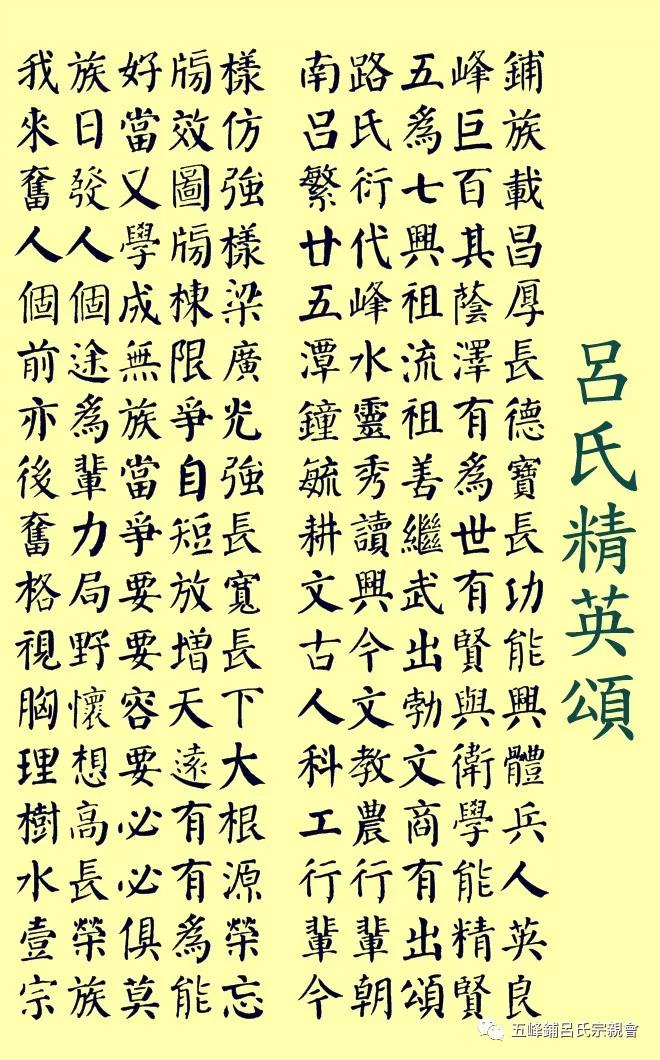 呂氏精英頌
南路五峰鋪
呂氏爲巨族
繁衍七百載
廿代興其昌
五峰祖蔭厚
潭水流澤長
鐘靈祖有德
毓秀善爲寶
耕讀繼世長
文興武有功
古今出賢能
人文勃與興
科教文衛體
工農商學兵
行行有能人
輩輩出精英
今朝頌賢良
我族好牓樣
來日當效仿
奮發又圖強
人人學牓樣
個個成棟梁
前途無限廣
亦爲族爭光
後輩當自強
奮力爭短長
格局要放寬
視野要增長
胸懷容天下
理想要遠大
樹高必有根
水長必有源
壹榮俱爲榮
宗族莫能忘
五峰鋪呂氏宗親會